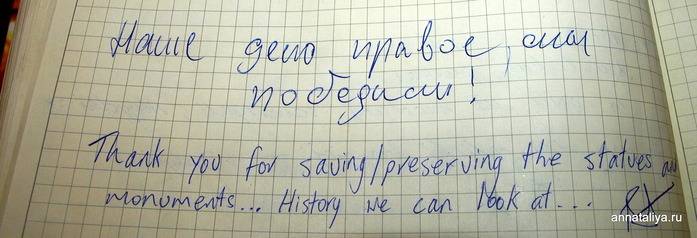 Наше дело правое, мы
победим!
Thank you for saving/preserving the statues and
monuments... History we can look at...
annataliya.ru